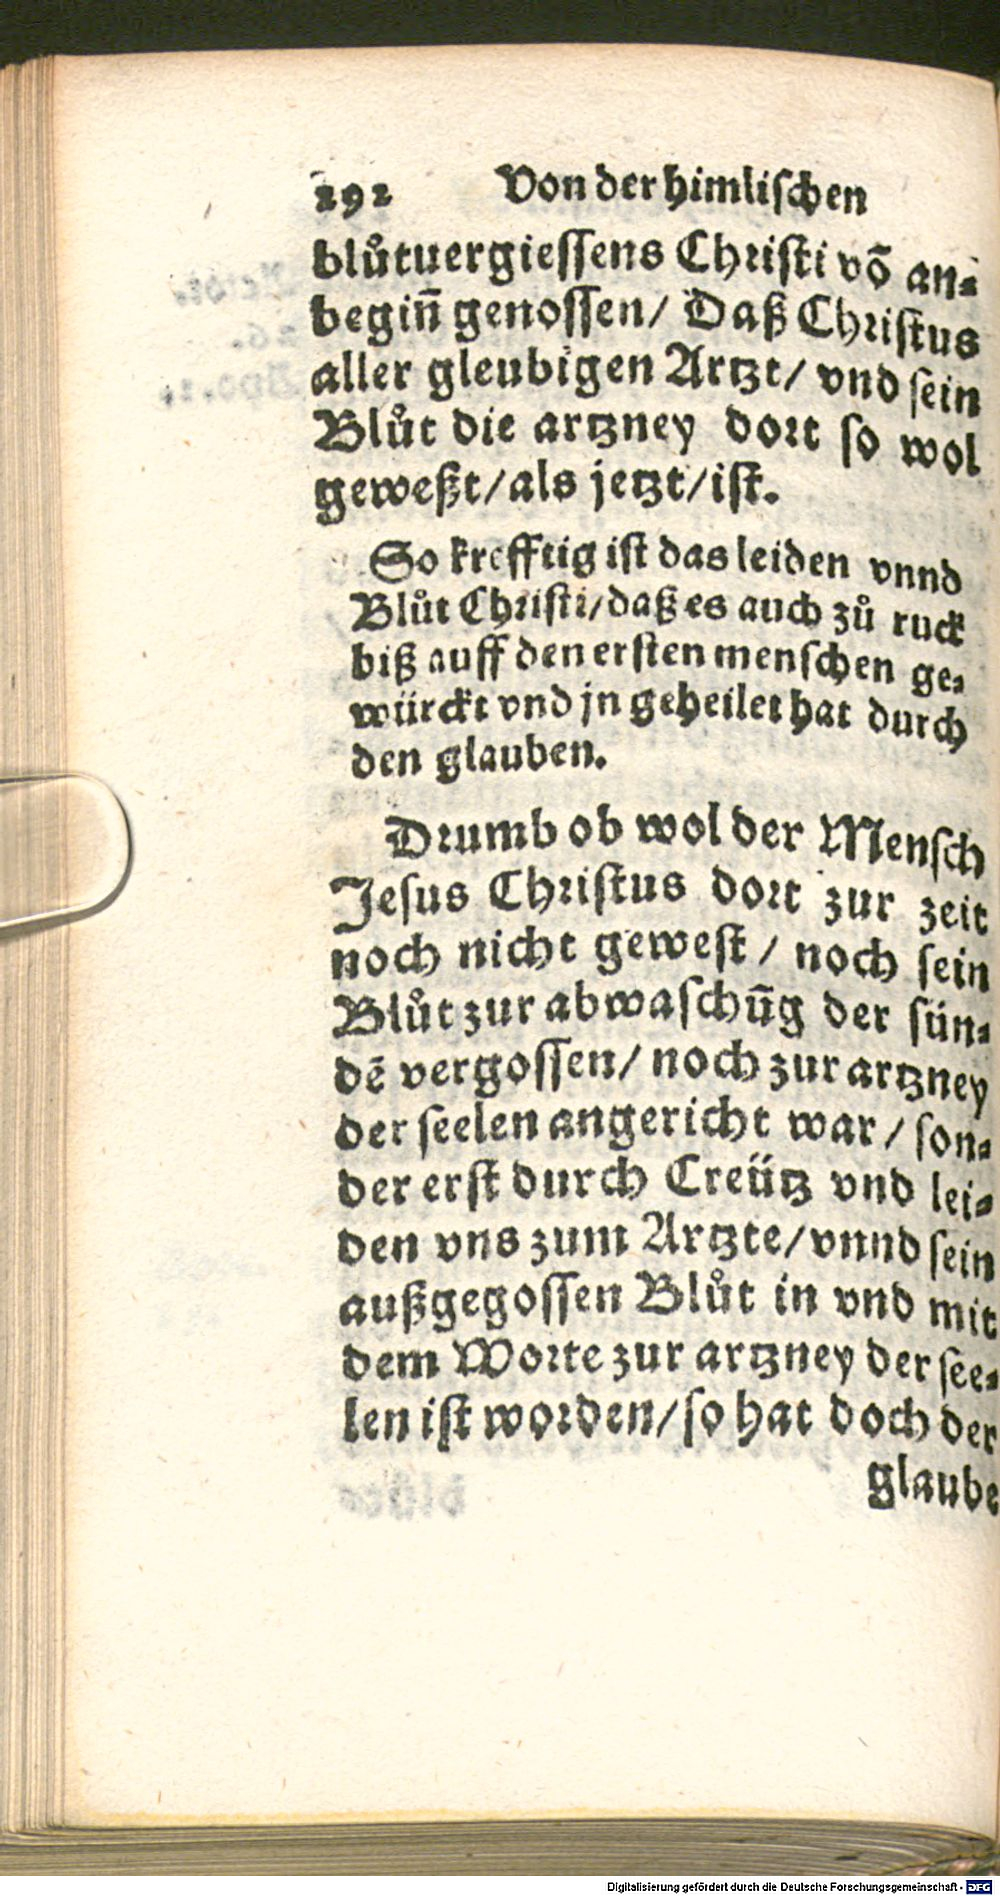 292 Von der himlischen
blůtuergiessens Christi võ an-
begiñ genossen/ Daß Christus
aller gleubigen Artzt/ vnd sein
Blůt die artzney dort so wol
geweßt/als jetzt/ist.
So krefftig ist das leiden vnnd
Blůt Christi/daß es auch zů ruck
biß auff den ersten menschen ge-
würckt vnd jn geheilet hat durch
den glauben.
Drumb ob wol der Mensch
Jesus Christus dort zur zeit
noch nicht gewest / noch sein
Blůt zur abwaschũg der sün-
dẽ vergossen/ noch zur artzney
der seelen angericht war / son-
der erst durch Creütz vnd lei-
den vns zum Artzte/vnnd sein
außgegossen Blůt in vnd mit
dem Worte zur artzney der see-
len ist worden/so hat doch der
glaube
Digitalisierung gefördert durch die Deutsche Forschungsgemeinschaft - DFG